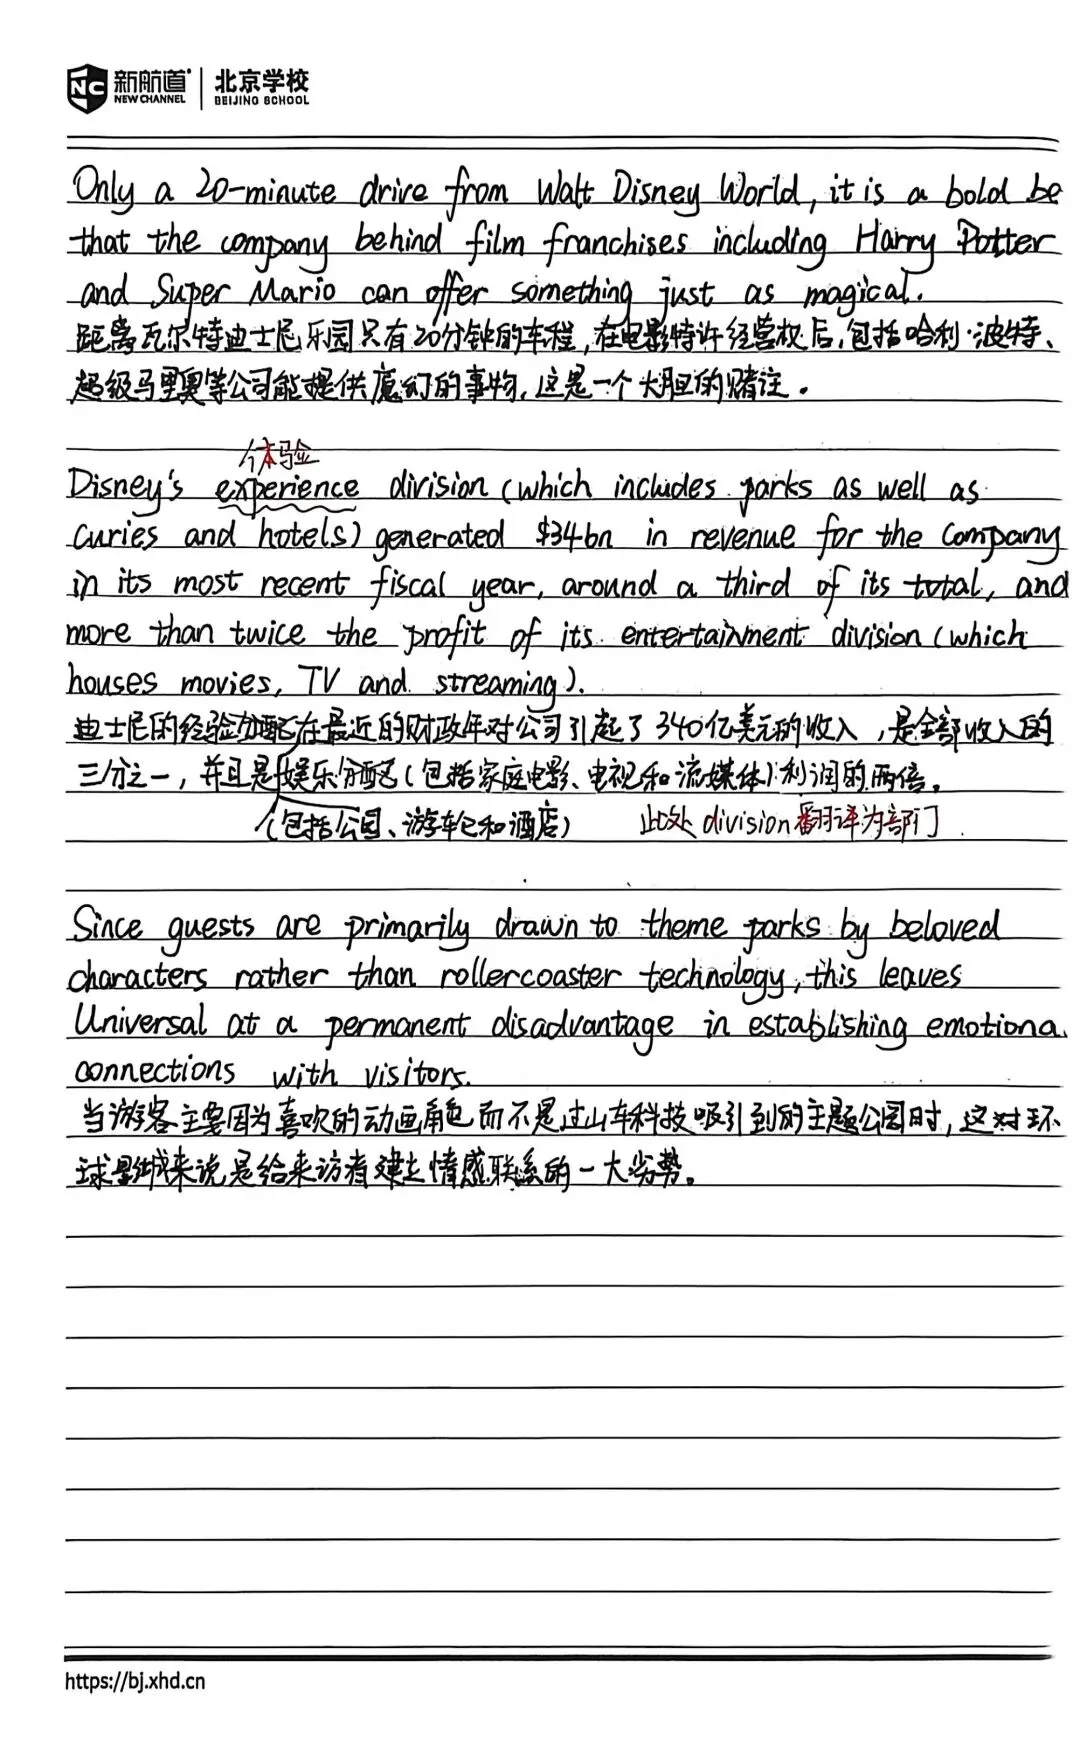 新航道 北京学校
NEW CHANNEL BEIJING SCHOOL
Only a 20-minute drive from Walt Disney World, it is a bold be
that the company behind film franchises including Harry Potter
and Super Mario can offer something just as magical.
距离瓦尔特迪士尼乐园只有20分钟的车程,在电影特许经营权后,包括哈利·波特、
超级马里奥等公司能提供魔幻的事物,这是一个大胆的赌注。
体验
Disney's experience division (which includes parks as well as
curies and hotels) generated $34bn in revenue for the company
in its most recent fiscal year, around a third of its total, and
more than twice the profit of its entertainment division (which
houses movies, TV and streaming).
迪士尼的经验分配在最近的财政年对公司引起了340亿美元的收入,是全部收入的
三分之一,并且是娱乐分配(包括家庭电影、电视和流媒体)利润的两倍。
(包括公园、游轮和酒店) 此处division翻译为部门
Since guests are primarily drawn to theme parks by beloved
characters rather than rollercoaster technology, this leaves
Universal at a permanent disadvantage in establishing emotiona
connections with visitors.
当游客主要因为喜欢的动画角色而不是过山车科技吸引到的主题公园时,这对环
球影城来说是给来访者建立情感联系的一大劣势。
https://bj.xhd.cn